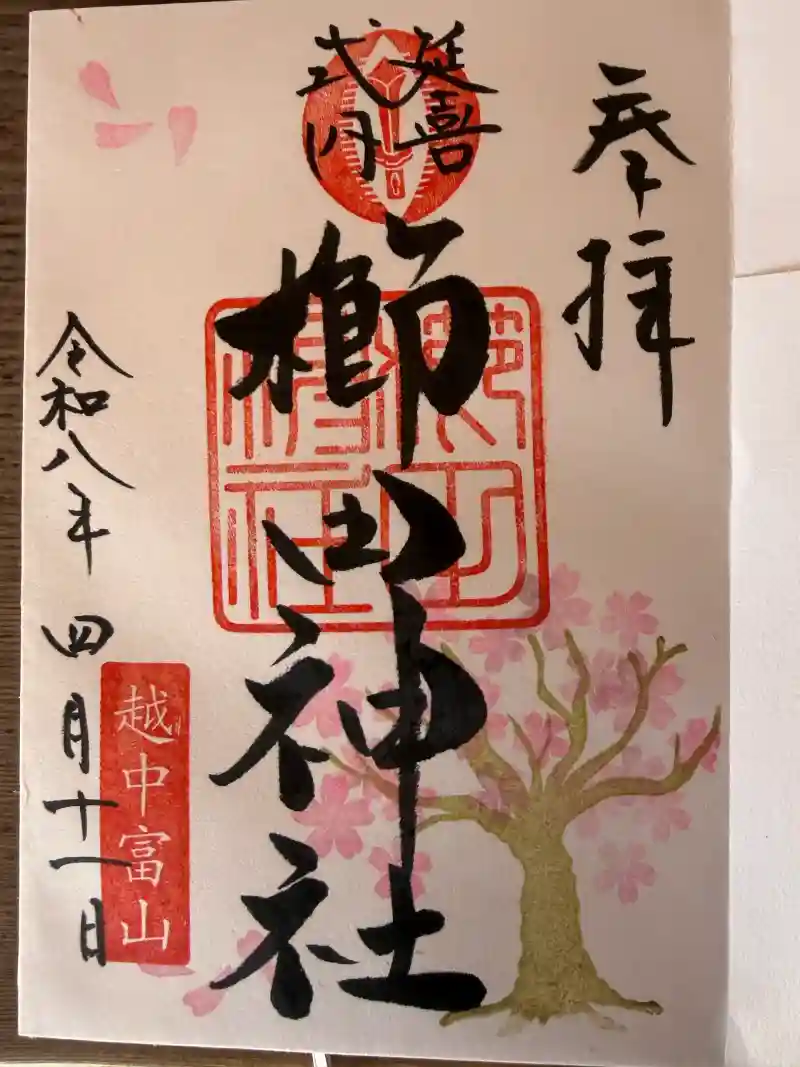 奉拝
延喜
式内
櫛田神社
越中富山
令和八年四月十一日